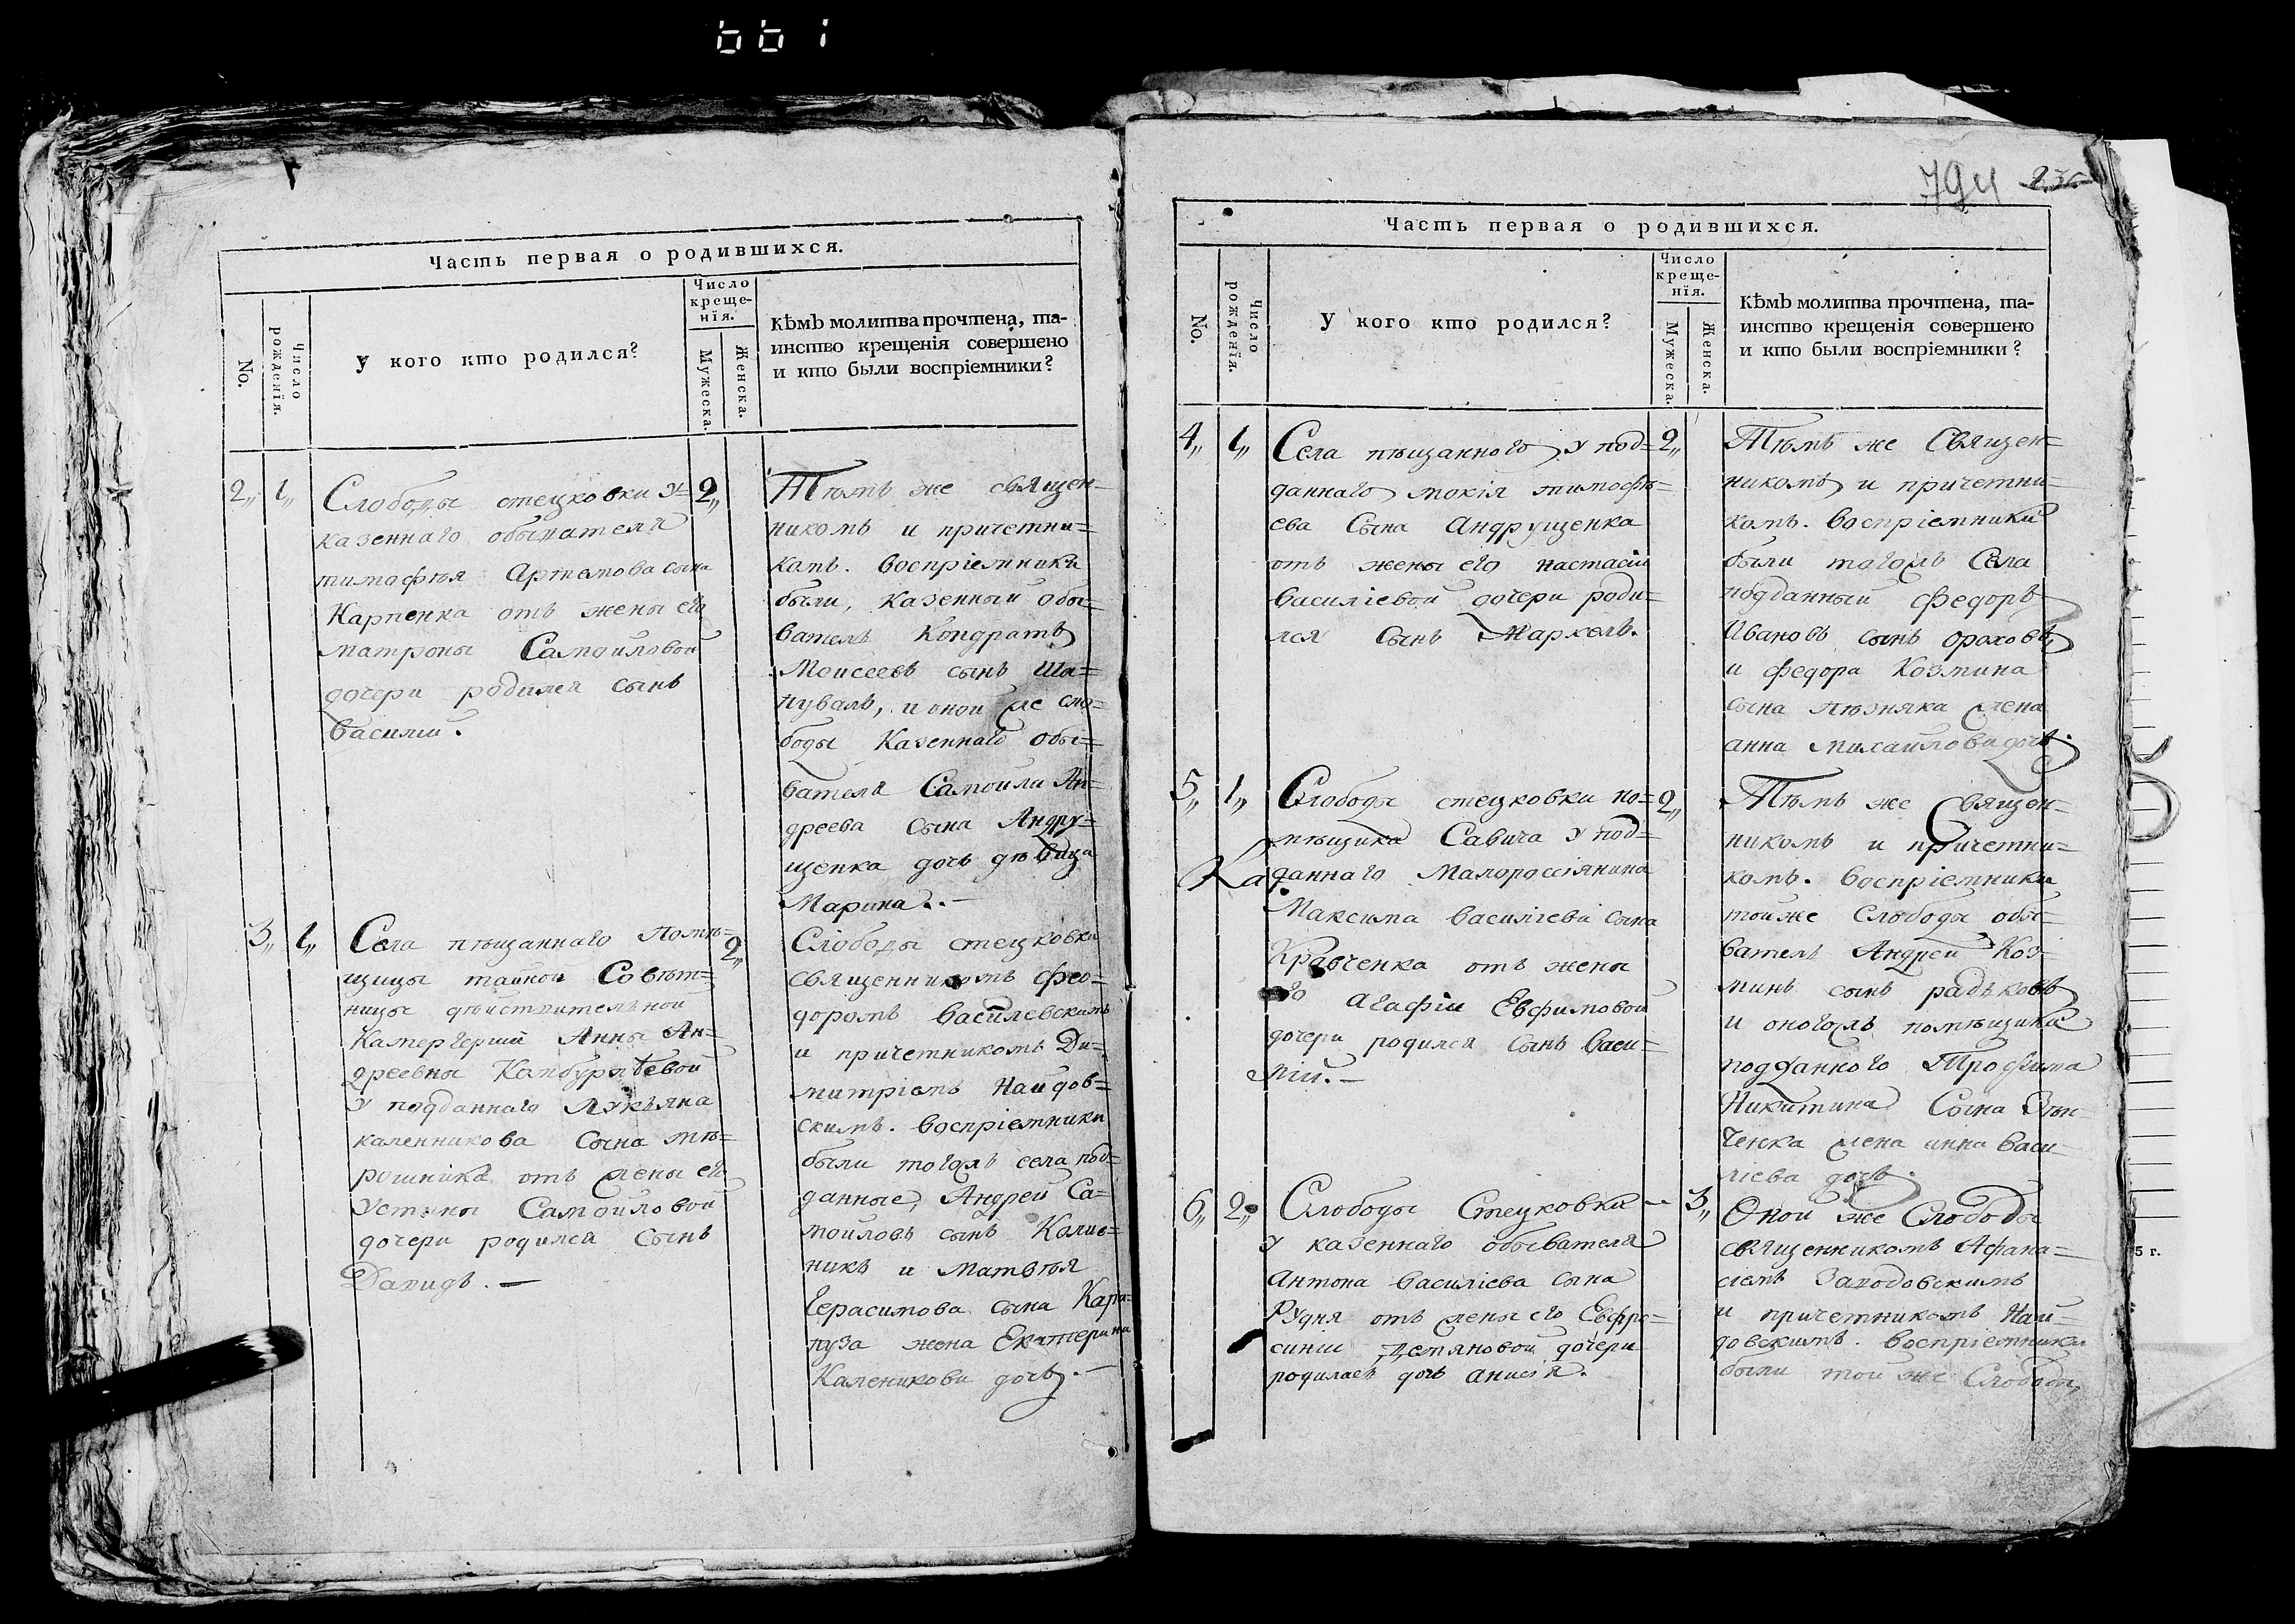 661
Часть первая о родившихся.
No.
Число рожденія.
У кого кто родился?
Число
креще-
нія.
Мужеска.
Женска.
Кѣмъ молитва прочтена, та-
инство крещенія совершено
и кто были воспріемники?
2,, 1,,
Слободы стецковки у=
казеннаго обывателя
тимофѣя Артемова сына
Карпенка отъ жены его
матроны Самойловой
дочери родился сынъ
василій.
2,,
Тѣмъ же священ-
никомъ и причетни=
комъ. воспріемники
были, казенный обы=
ватель Кондратъ
Моисеевъ сынъ Ша=
пувалъ, и оной же сло=
боды Казеннаго обы=
вателя Самойли Ан=
дреева сына Андру=
щенка дочь дѣвица
Марина. . —
3,, 1,,
Села пѣщаннаго помѣ=
щицы тайной Совѣт=
ницы дѣйствительной
Камергерши Анны Ан=
дреевны Камбурлѣевой
у подданнаго Лукьяна
каленникова Сына мѣ=
рошника отъ жены его
Устины Самойловой
дочери родился Сынъ
Давидъ. —
2,,
Слободы стецковки
священникомъ фео=
доромъ василевскимъ
и причетникомъ Ди=
митріемъ Найдов=
скимъ. воспріемники
были тогожъ села под=
данные, Андрей Са=
мойловъ сынъ Калив=
никъ и Матвѣя
Герасимова сына Кара=
пуза жена Екатерина
Каленикова дочь. —
794
Часть первая о родившихся.
No.
Число рожденія.
У кого кто родился?
Число
креще-
нія.
Мужеска.
Женска.
Кѣмъ молитва прочтена, та-
инство крещенія совершено
и кто были воспріемники?
4,, 1,,
Села пѣщанного у под=
даннаго мокія тимофѣ=
ева Сына Андрущенка
отъ жены его настасіи
василіевой дочери роди=
лся Сынъ Маркелъ.
2,,
Тѣмъ же Священ=
никомъ и причетни=
комъ. воспріемники
были тогожъ Села
подданный федоръ
Ивановъ сынъ ороховъ,
и федора Козмина
сына пѣзняка жена
анна михайлова дочь.
5,, 1,,
Слободы стецковки по=
мѣщика Савича у под=
даннаго Малороссіянина
Максима василіева сына
Кравченка отъ жены
его агафіи Евфимовой
дочери родился Сынъ васи=
лій. —
Ка
2,,
Тѣмъ же Священ=
никомъ и причетни=
комъ. воспріемники
тойже Слободы обы=
ватель Андрей Коз=
минъ сынъ радьковъ
и оногожъ помѣщика
подданного Трофима
Никитина Сына Зѣн=
ченка жена анна васи=
ліева дочь.
6,, 2,,
Слободы Стецковки —
у казеннаго обывателя
антона василіева сына
Рудня отъ жены его Евфро=
синіи Демяновой дочери
родилась дочь анисія.
3,,
Оной же Слободы
священникомъ Афана=
сіемъ Заводовскимъ
и причетникомъ Най=
довскимъ. воспріемники
были той же Слободы,
5 г.